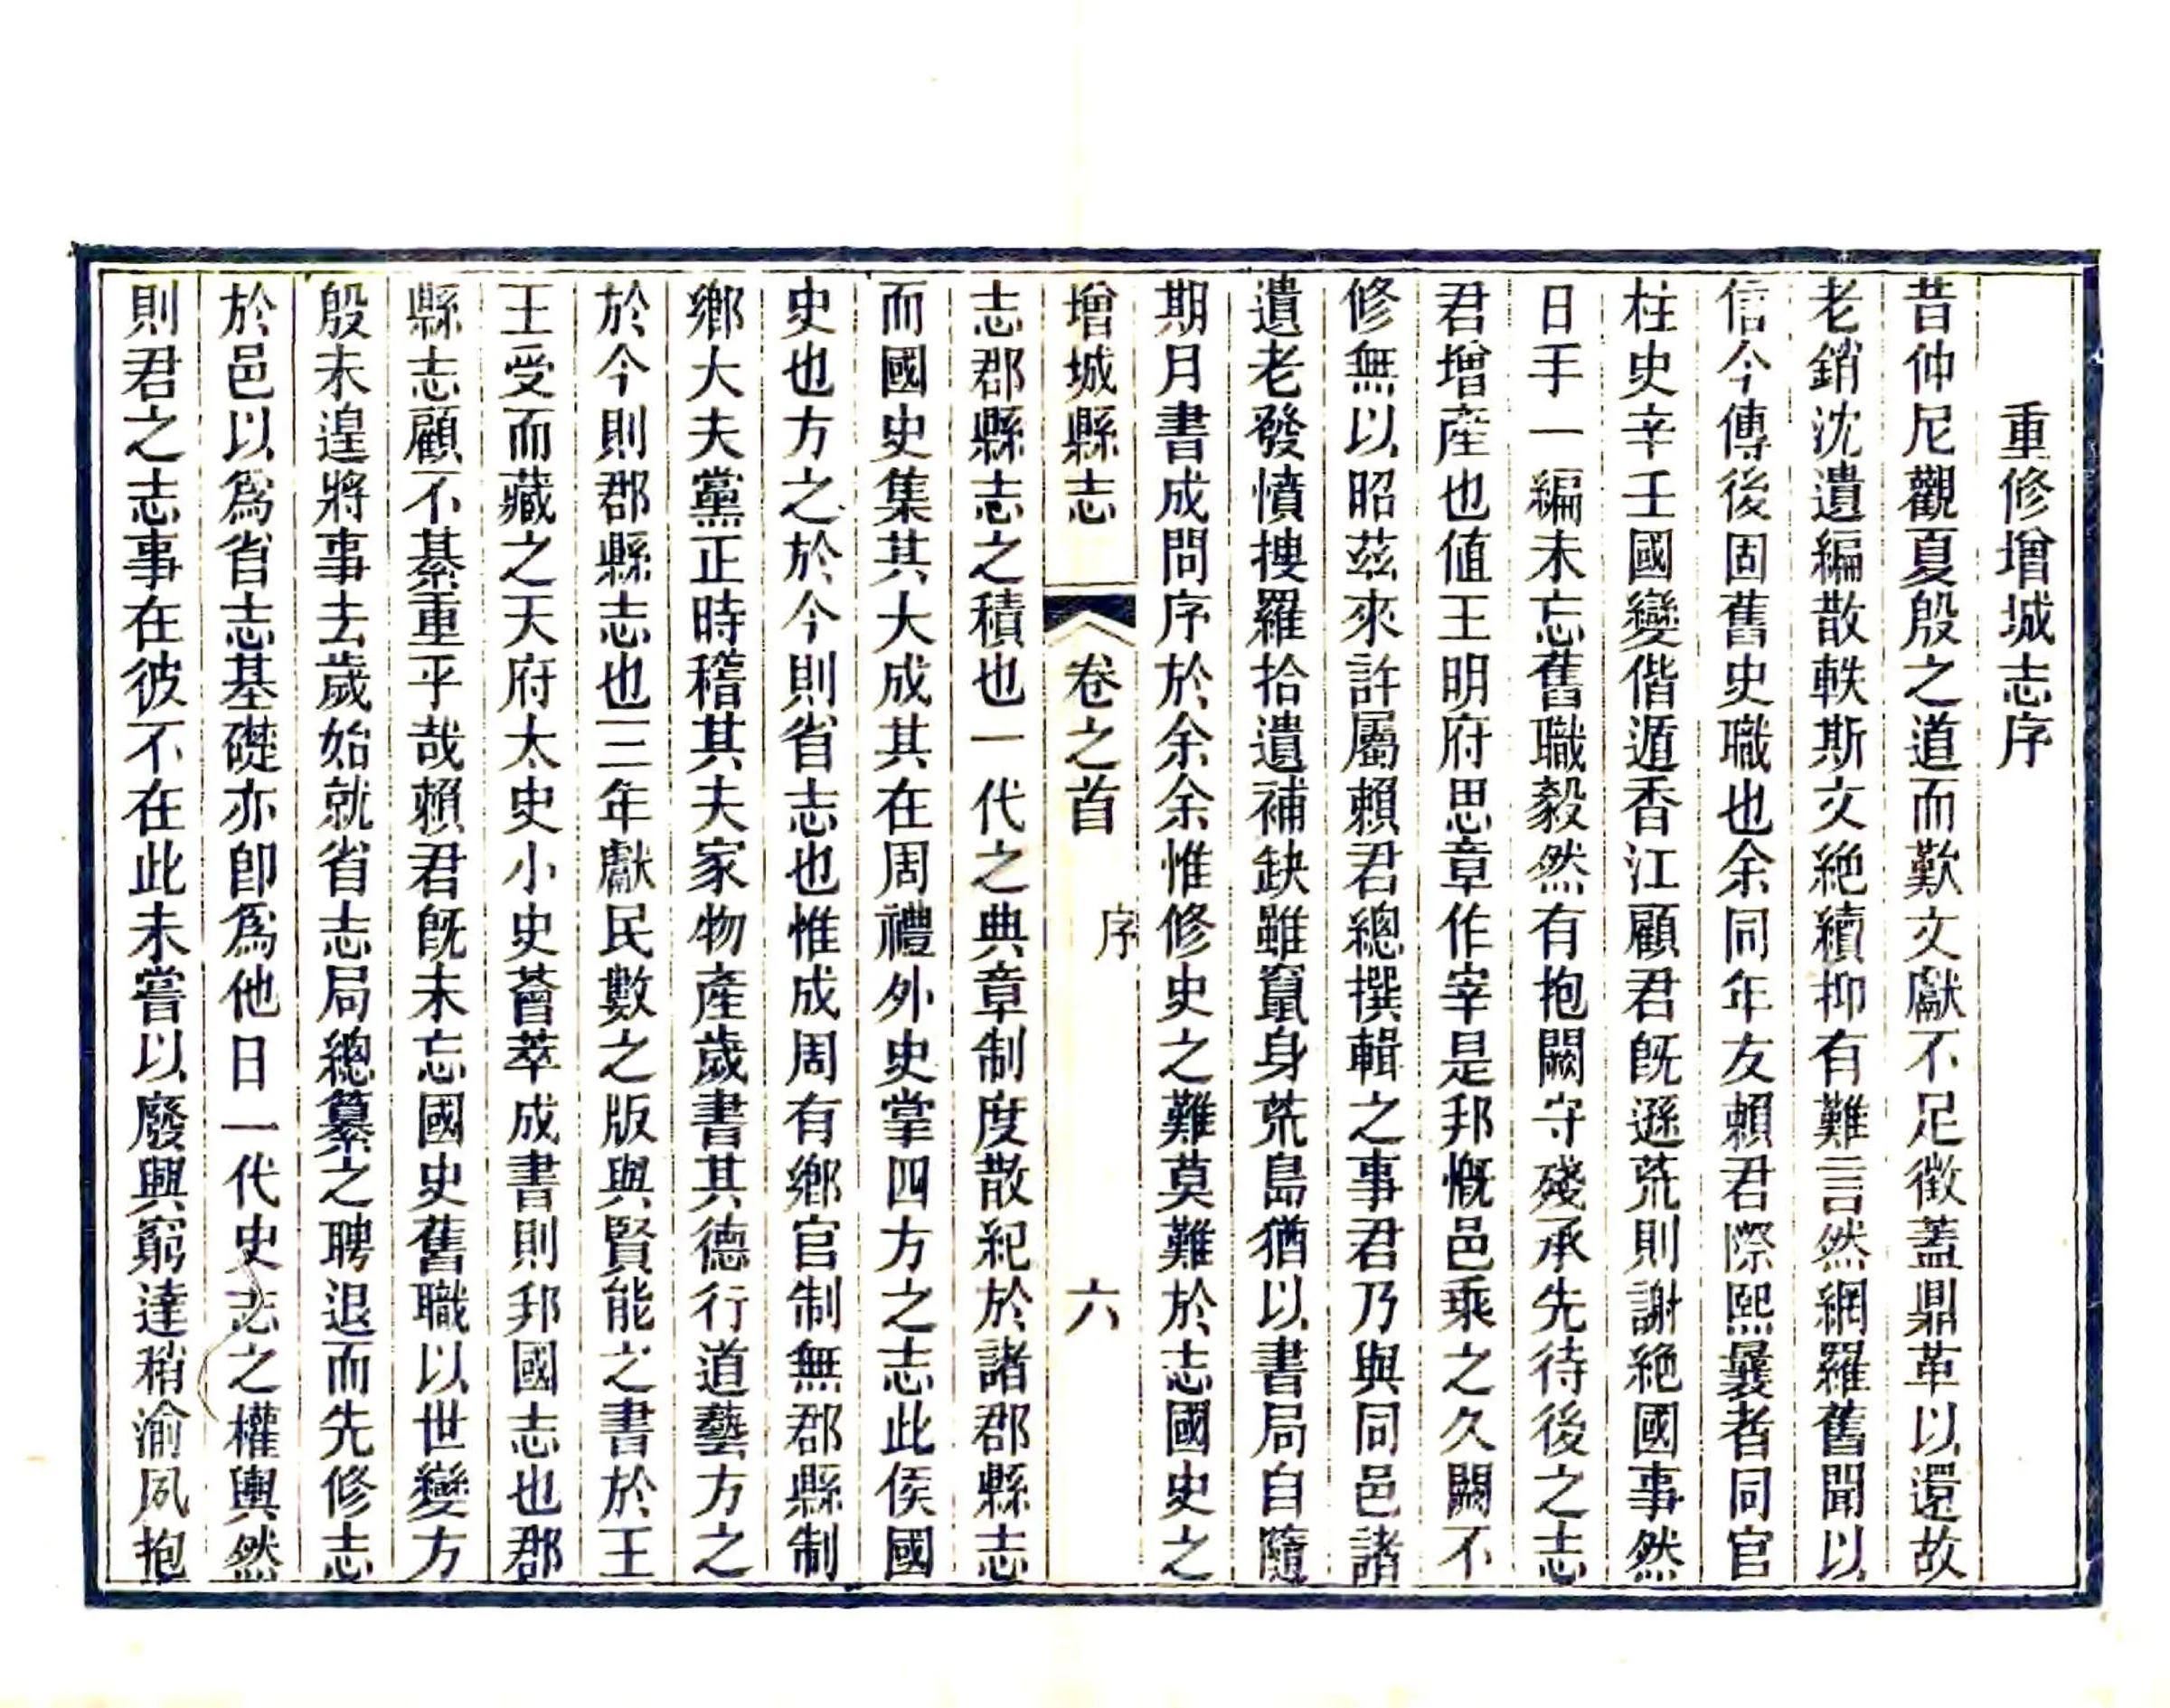 重修增城志序
昔仲尼觀夏殷之道而歎文獻不足徵蓋鼎革以還故
老銷沈遺編散軼斯文絕續抑有難言然網羅舊聞以
信今傳後固舊史職也余同年友賴君際熙曩者同官
柱史辛壬國變偕遁香江顧君旣遜荒則謝絕國事然
日手一編未忘舊職毅然有抱闕守殘承先待後之志
君增產也値王明府思章作宰是邦慨邑乘之久闕不
修無以昭茲來許屬賴君總撰輯之事君乃與同邑諸
遺老發憤摟羅拾遺補缺雖竄身荒島猶以書局自隨
期月書成問序於余余惟修史之難莫難於志國史之
增城縣志 卷之首 序 六
志郡縣志之積也一代之典章制度散紀於諸郡縣志
而國史集其大成其在周禮外史掌四方之志此侯國
史也方之於今則省志也惟成周有鄉官制無郡縣制
鄉大夫黨正時稽其夫家物產歲書其德行道藝方之
於今則郡縣志也三年獻民數之版與賢能之書於王
王受而藏之天府太史小史薈萃成書則邦國志也郡
縣志顧不綦重乎哉賴君旣未忘國史舊職以世變方
殷未遑將事去歲始就省志局總纂之聘退而先修志
於邑以爲省志基礎亦卽爲他日一代史志之權輿然
則君之志事在彼不在此未嘗以廢興窮達稍渝夙抱